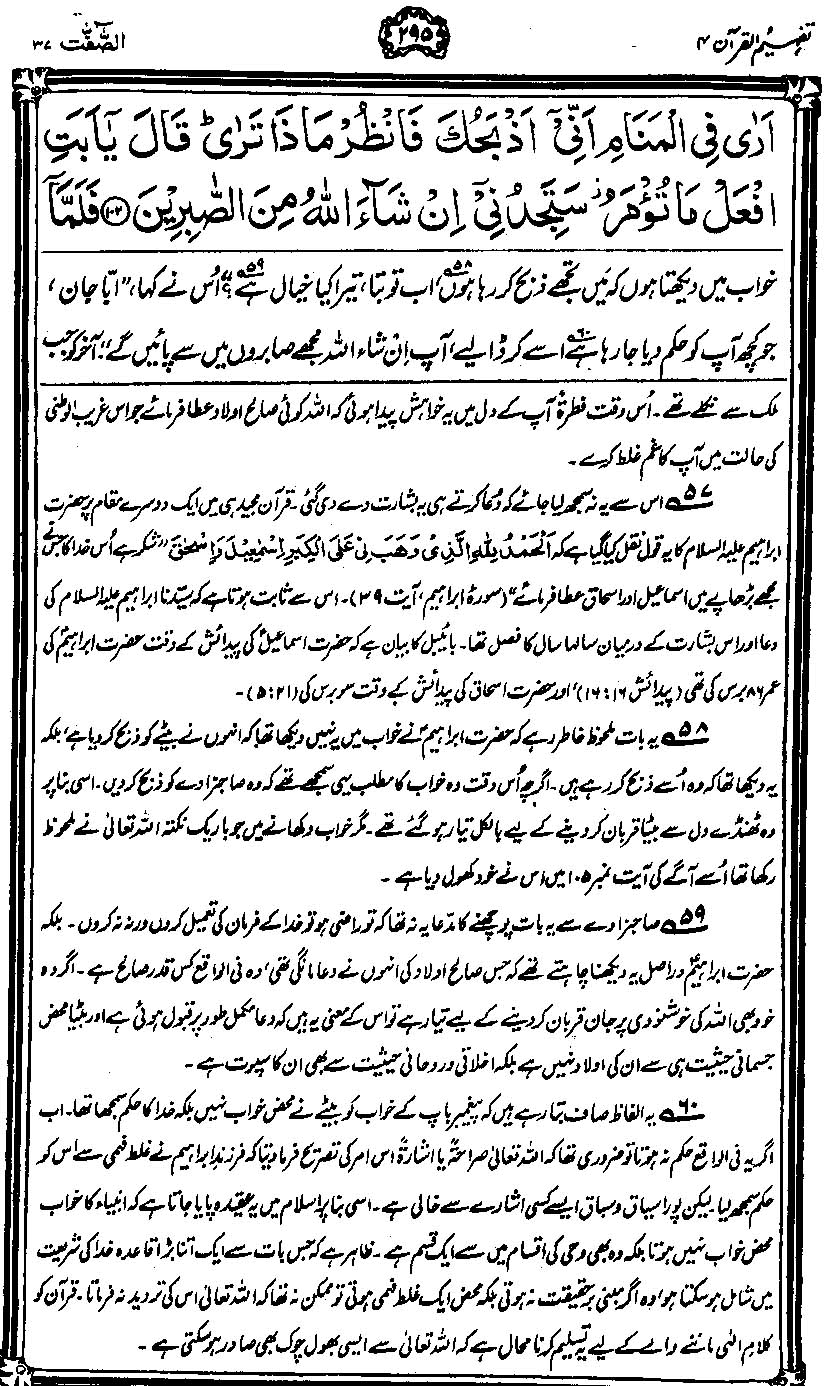 تفہیم القرآن ۴
۲۹۵
الصّٰفّٰت ۳۷
اَرٰى فِى الْمَنَامِ اَنِّىْۤ اَذْبَحُكَ فَانْظُرْ مَاذَا تَرٰىؕ قَالَ يٰۤاَبَتِ
افْعَلْ مَا تُؤْمَرُ ؗ سَتَجِدُنِىْۤ اِنْ شَآءَ اللّٰهُ مِنَ الصّٰبِرِيْنَ ﴿۱۰۲﴾ فَلَمَّاۤ
خواب میں دیکھتا ہوں کہ میں تجھے ذبح کر رہا ہوں۵۸، اب تو بتا، تیرا کیا خیال ہے؟“۵۹ اُس نے کہا، ”ابّا جان،
جو کچھ آپ کو حکم دیا جا رہا ہے۶۰ اسے کر ڈالیے، آپ اِن شاء اللہ مجھے صابروں میں سے پائیں گے“۔ آخر کو جب
ملک سے نکلے تھے۔ اُس وقت فطرۃً آپ کے دل میں یہ خواہش پیدا ہوئی کہ اللہ کوئی صالح اولاد عطا فرمائے جو اس غریب الوطنی
کی حالت میں آپ کا غم غلط کرے۔
۵۷ اس سے یہ نہ سمجھ لیا جائے کہ دُعا کرتے ہی یہ بشارت دے دی گئی۔ قرآن مجید ہی میں ایک دوسرے مقام پر حضرت
ابراہیم علیہ السلام کا یہ قول نقل کیا گیا ہے کہ اَلْحَمْدُ لِلّٰهِ الَّذِىْ وَهَبَ لِىْ عَلَى الْكِبَرِ اِسْمٰعِيْلَ وَاِسْحٰقَ ”شکر ہے اُس خدا کا جس نے
مجھے بڑھاپے میں اسماعیل اور اسحاق عطا فرمائے“ (سورۂ ابراہیم، آیت ۳۹)۔ اس سے ثابت ہوتا ہے کہ سیّدنا ابراہیم علیہ السلام کی
دعا اور اس بشارت کے درمیان سالہا سال کا فصل تھا۔ بائیبل کا بیان ہے کہ حضرت اسماعیلؑ کی پیدائش کے وقت حضرت ابراہیمؑ کی
عمر ۸۶ برس کی تھی (پیدائش ۱۶:۱۶)، اور حضرت اسحاق کی پیدائش کے وقت سو برس کی (۵:۲۱)۔
۵۸ یہ بات ملحوظِ خاطر رہے کہ حضرت ابراہیمؑ نے خواب میں یہ نہیں دیکھا تھا کہ انہوں نے بیٹے کو ذبح کر دیا ہے، بلکہ
یہ دیکھا تھا کہ وہ اُسے ذبح کر رہے ہیں۔ اگرچہ اُس وقت وہ خواب کا مطلب یہی سمجھے تھے کہ وہ صاحبزادے کو ذبح کر دیں۔ اسی بنا پر
وہ ٹھنڈے دل سے بیٹا قربان کر دینے کے لیے بالکل تیار ہو گئے تھے۔ مگر خواب دکھانے میں جو باریک نکتہ اللہ تعالیٰ نے ملحوظ
رکھا تھا اُسے آگے کی آیت نمبر ۱۰۵ میں اس نے خود کھول دیا ہے۔
۵۹ صاحبزادے سے یہ بات پوچھنے کا مدّعا یہ نہ تھا کہ تو راضی ہو تو خدا کے فرمان کی تعمیل کروں ورنہ نہ کروں۔ بلکہ
حضرت ابراہیمؑ دراصل یہ دیکھنا چاہتے تھے کہ جس صالح اولاد کی انہوں نے دعا مانگی تھی، وہ فی الواقع کس قدر صالح ہے۔ اگر وہ
خود بھی اللہ کی خوشنودی پر جان قربان کر دینے کے لیے تیار ہے تو اس کے معنی یہ ہیں کہ دعا مکمل طور پر قبول ہوئی ہے اور بیٹا محض
جسمانی حیثیت ہی سے ان کی اولاد نہیں ہے بلکہ اخلاقی و روحانی حیثیت سے بھی ان کا سپوت ہے۔
۶۰ یہ الفاظ صاف بتا رہے ہیں کہ پیغمبر باپ کے خواب کو بیٹے نے محض خواب نہیں بلکہ خدا کا حکم سمجھا تھا۔ اب
اگر یہ فی الواقع حکم نہ ہوتا تو ضروری تھا کہ اللہ تعالیٰ صراحۃً یا اشارۃً اس امر کی تصریح فرما دیتا کہ فرزندِ ابراہیم نے غلط فہمی سے اس کو
حکم سمجھ لیا۔ لیکن پورا سیاق و سباق ایسے کسی اشارے سے خالی ہے۔ اسی بنا پر اسلام میں یہ عقیدہ پایا جاتا ہے کہ انبیاء کا خواب
محض خواب نہیں ہوتا بلکہ وہ بھی وحی کی اقسام میں سے ایک قسم ہے۔ ظاہر ہے کہ جس بات سے ایک اتنا بڑا قاعدہ خدا کی شریعت
میں شامل ہو سکتا ہو، وہ اگر مبنی بر حقیقت نہ ہوتی بلکہ محض ایک غلط فہمی ہوتی تو ممکن نہ تھا کہ اللہ تعالیٰ اس کی تردید نہ فرماتا۔ قرآن کو
کلامِ الٰہی ماننے والے کے لیے یہ تسلیم کرنا محال ہے کہ اللہ تعالیٰ سے ایسی بھول چوک بھی صادر ہو سکتی ہے۔